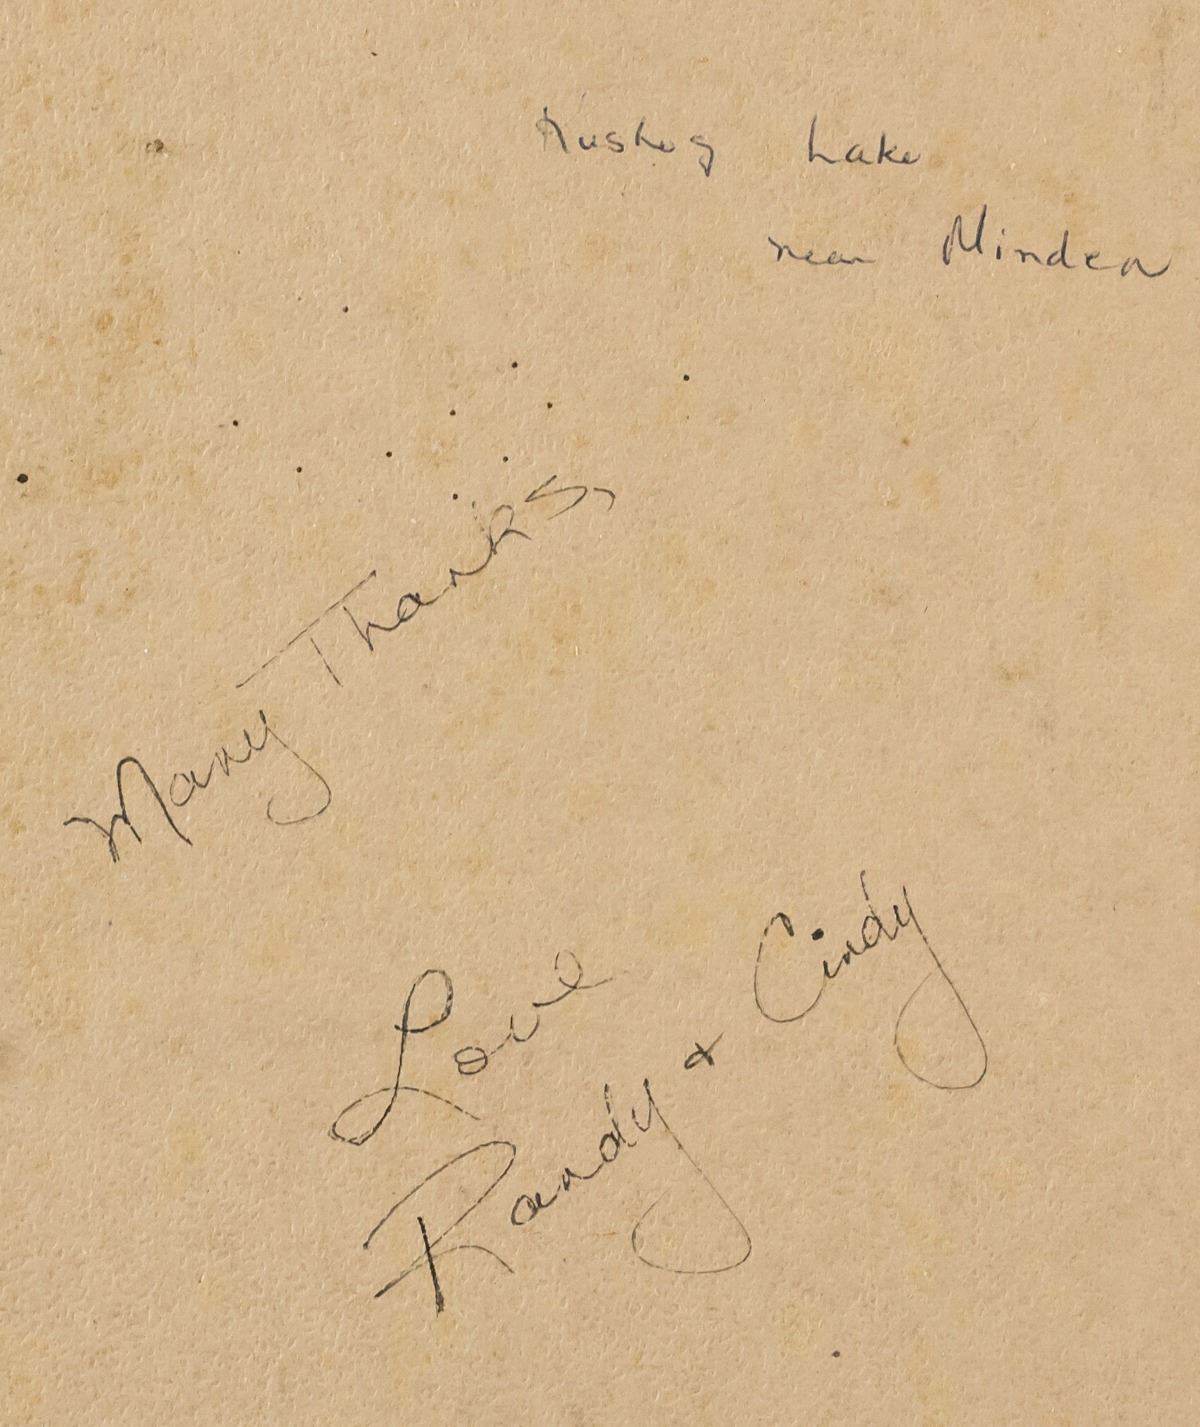 Kushog Lake
near Minden
Many Thanks,
Love
Randy + Cindy